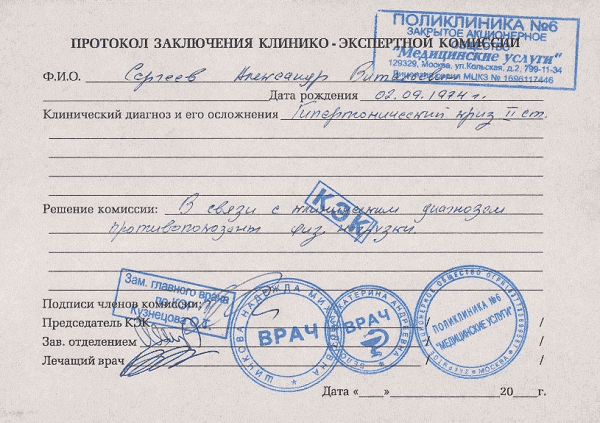 ПОЛИКЛИНИКА №6
ЗАКРЫТОЕ АКЦИОНЕРНОЕ
ОБЩЕСТВО
"Медицинские услуги"
129329, Москва, ул.Кольская, д.2, 799-11-34
ПРОТОКОЛ ЗАКЛЮЧЕНИЯ КЛИНИКО - ЭКСПЕРТНОЙ КОМИССИИ
Ф.И.О. Сергеев Александр
Дата рождения 02.09.1974г.
Клинический диагноз и его осложнения Гипертонический криз II ст.
КЭК
Решение комиссии: В связи с клиническим диагнозом
противопоказаны физ нагрузки.
Зам. главного врача
по КЭК
Кузнецова О.Г.
Подписи членов комиссии:
Председатель КЭК / /
Зав. отделением / /
Лечащий врач / /
НАДЕЖДА
ВРАЧ
ЕКАТЕРИНА АНДРЕЕВНА
ВРАЧ
ПОЛИКЛИНИКА №6
"МЕДИЦИНСКИЕ УСЛУГИ"
МОСКВА
Дата «___»__________20___г.